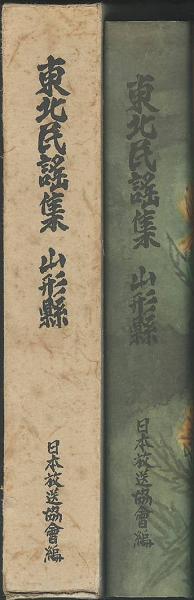 東北民謠集 山形縣
日本放送協會編
東北民謠集 山形縣
日本放送協會編